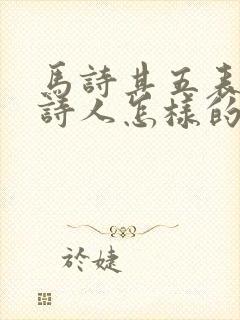 馬詩其五表
詩人怎樣的
於婕